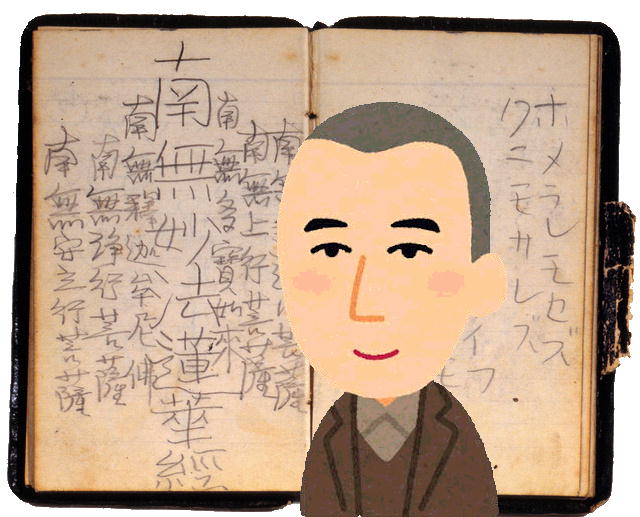 ホメラレモセズ
クニモサレズ
イフ
南無
南無上行菩薩
南無多寳如來
南無妙法蓮華経
南無釋迦牟尼佛
南無浄行菩薩
南無安立行菩薩